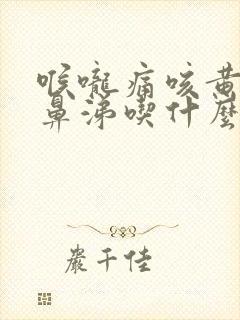 喉嚨痛咳黃
鼻涕喫什麼
嚴千佳